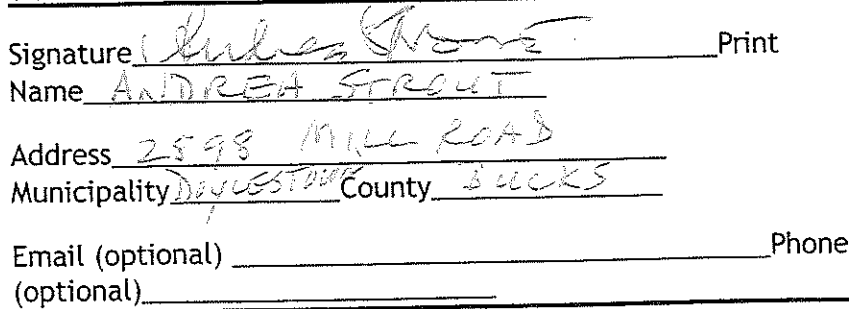 Signature Andrea Strout Print
Name ANDREA STROUT
Address 2898 MILL ROAD
Municipality DOYLESTOWN County BUCKS
Email (optional) Phone
(optional)